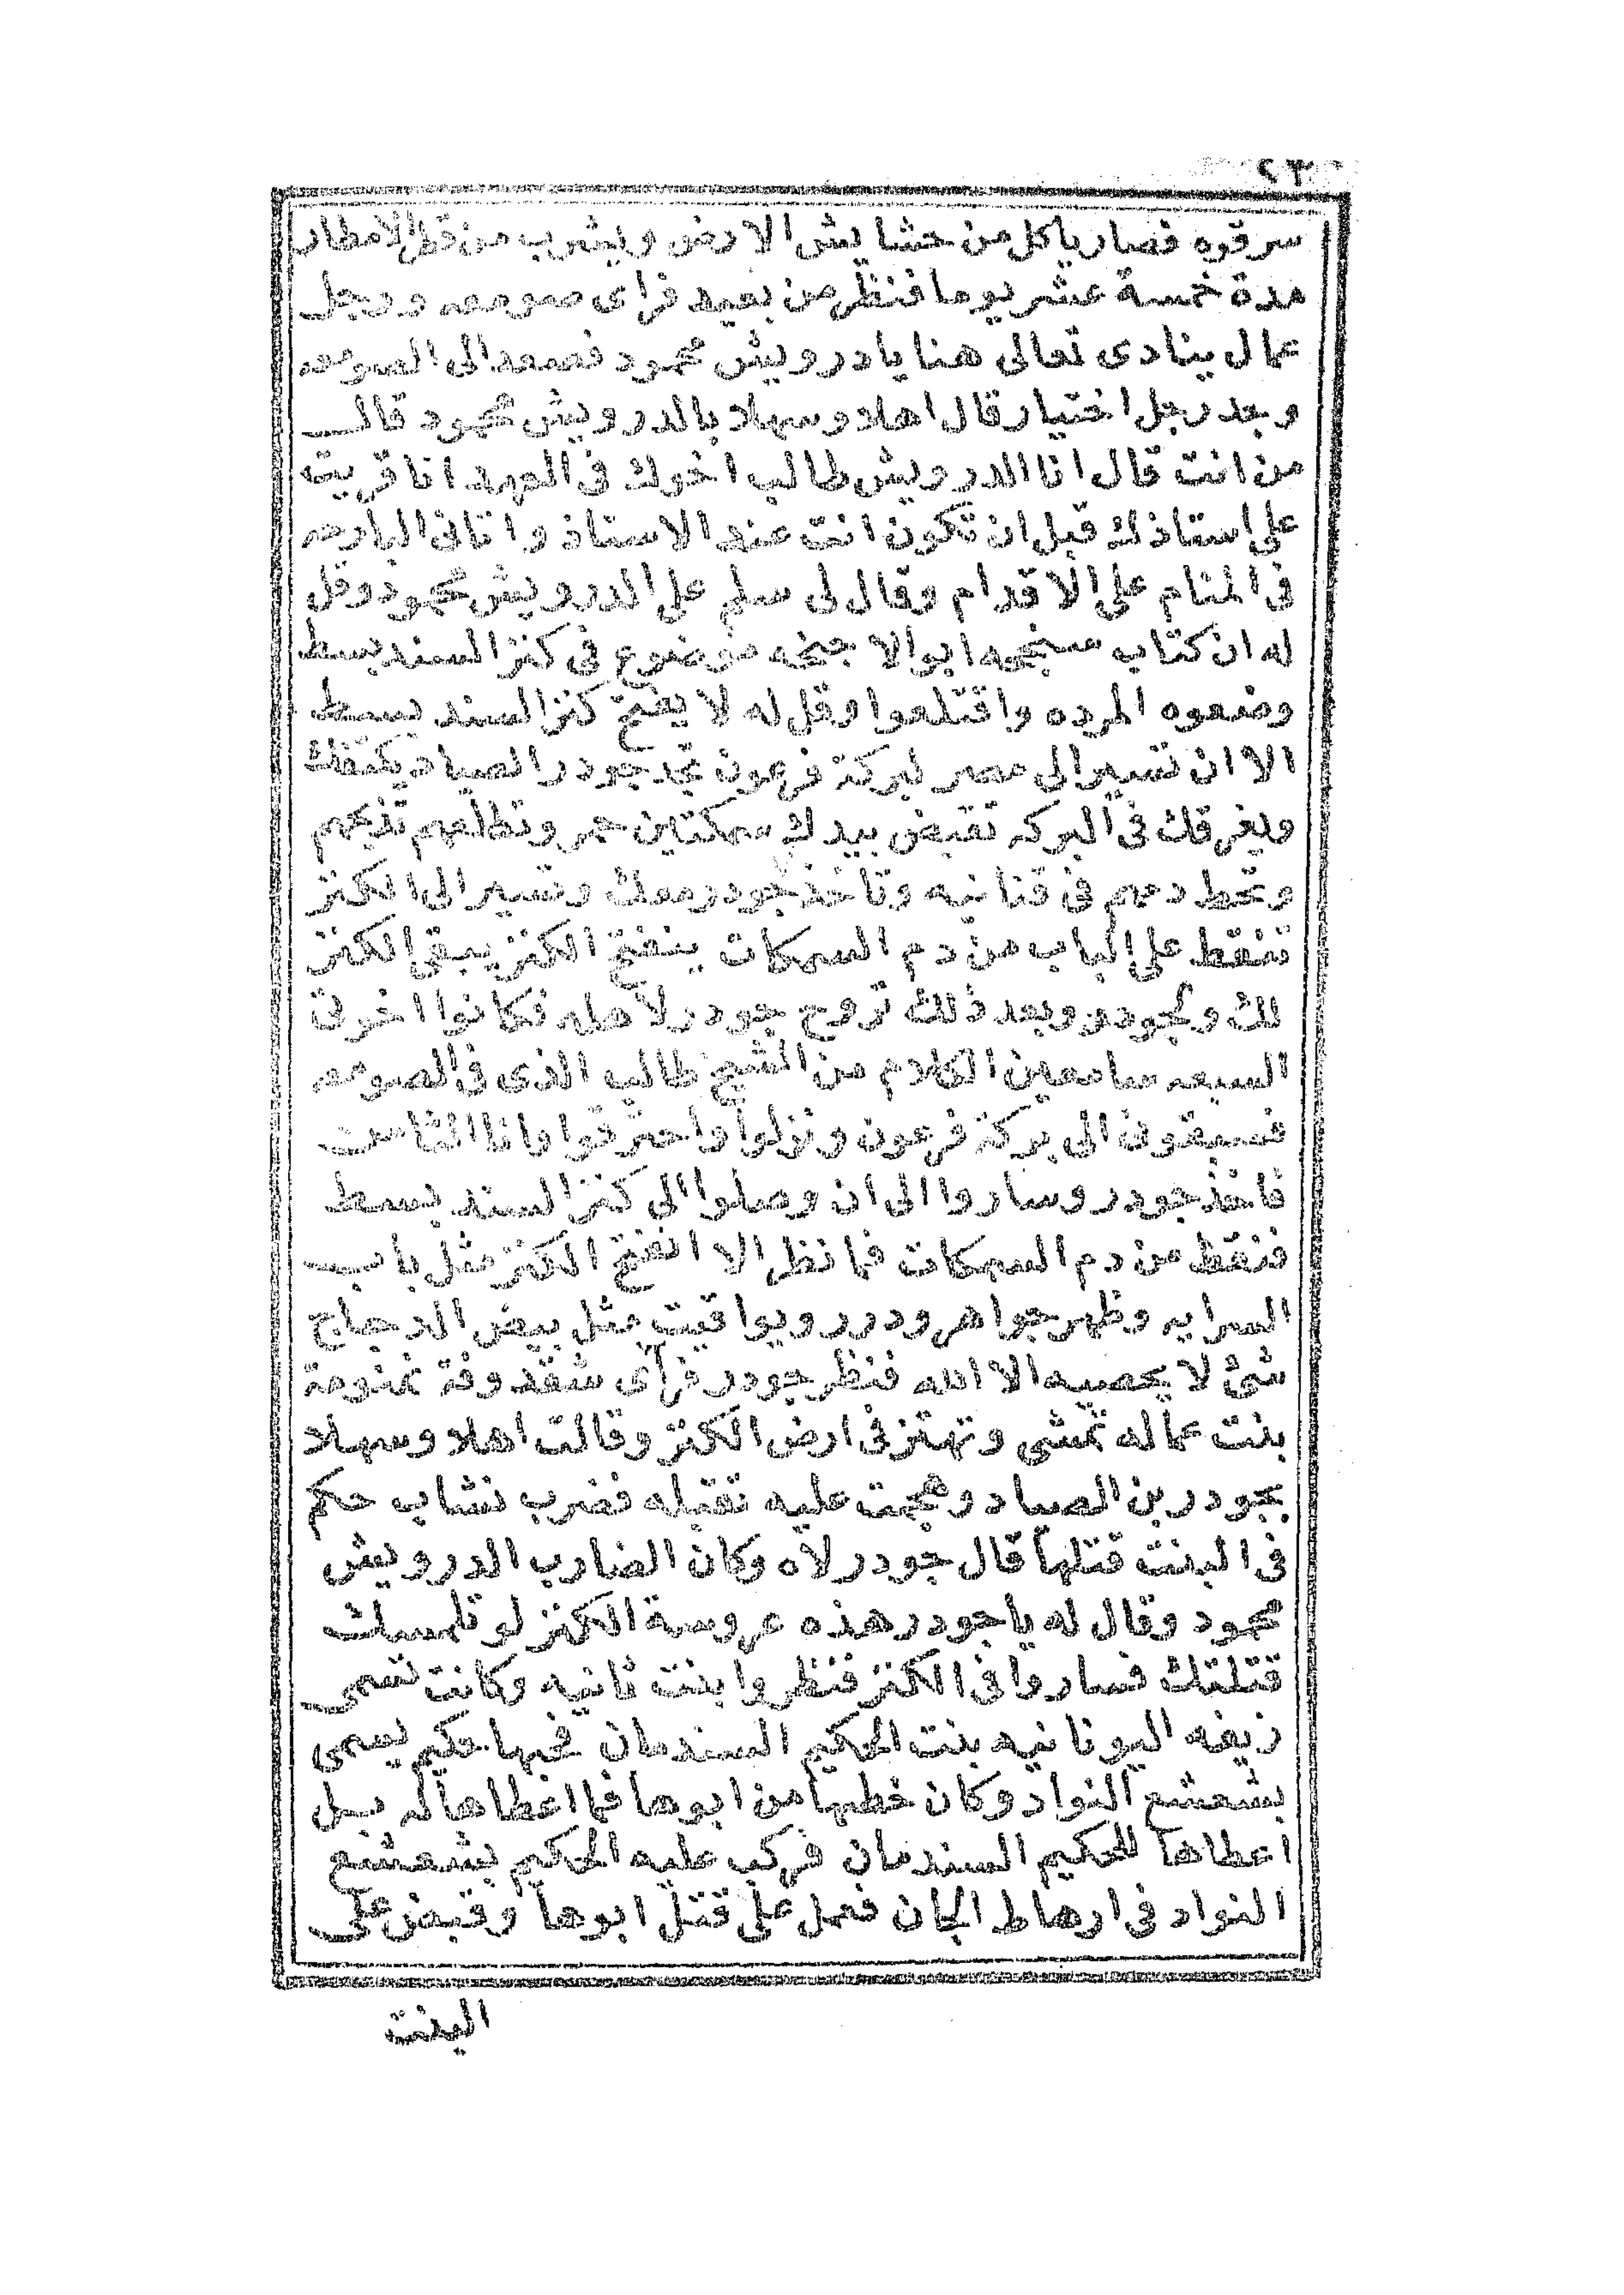 ٢٣
سرقوه فصار ياكل من حشايش الارض ويشرب من قطر الامطار
مدة خمسة عشر يوما فنظر من بعيد فراى صومعه ورجل
عمال ينادى تعالى هنا يا درويش محمود فصعد الى الصومعه
وجد رجل اختيار قال اهلا وسهلا بالدرويش محمود قال
من انت قال انا الدرويش طالب اخوك فى العهد انا قريت
على استاذك قبل ان تكون انت عند الاستاذ واتانى البارحه
فى المنام على الاقدام وقال لى سلم على الدرويش محمود وقل
له ان كتاب ابو الاجنحه موضوع فى كنز السند بسط
وضعوه المرده واقتلعوا وقل له لا يفتح كنز السند بسط
الا ان تسير الى مصر لبركة فرعون تجد جودر الصياد يكتفك
ويغرقك فى البركه تقبض بيدك سمكتين حمر وتطلعهم تذبحهم
وتحط دمهم فى قنانيه وتاخذ جودر معك وتسير الى الكنز
تنقط على الباب من دم السمكات ينفتح الكنز يبقى الكنز
لك ولجودر وبعد ذلك تروح جودر لاهله فكانوا اخوتى
السبعه سامعين الكلام من الشيخ طالب الذى فى الصومعه
فسبقونى الى بركة فرعون ونزلوا واحترقوا وانا الثامن
فاخذ جودر وساروا الى ان وصلوا الى كنز السند بسط
فنقط من دم السمكات فما نظر الا انفتح الكنز مثل باب
السرايه وظهر جواهر ودرر ويواقيت مثل بيض الدجاج
شئ لا يحصيه الا الله فنظر جودر فرأى شقدوفة مختومة
بنت عماله تمشى وتهتز فى ارض الكنز وقالت اهلا وسهلا
بجودر بن الصياد وهجمت عليه تقتله فضرب نشاب حكم
فى البنت قتلها قال جودر لاه وكان الضارب الدرويش
محمود وقال له يا جودر هذه عروسة الكنز لو تلمسك
قتلتك فساروا فى الكنز فنظروا بنت ثانيه وكانت تسمى
زيفه اليونانيه بنت الحكيم السندمان فحبها حكيم يسمى
بشعشع النواد وكان خطبها من ابوها فما اعطاها له بل
اعطاها للحكيم السندمان فركب عليه الحكيم بشعشع
النواد فى ارهاط الجان فعمل على قتل ابوها وقبض على
البنت